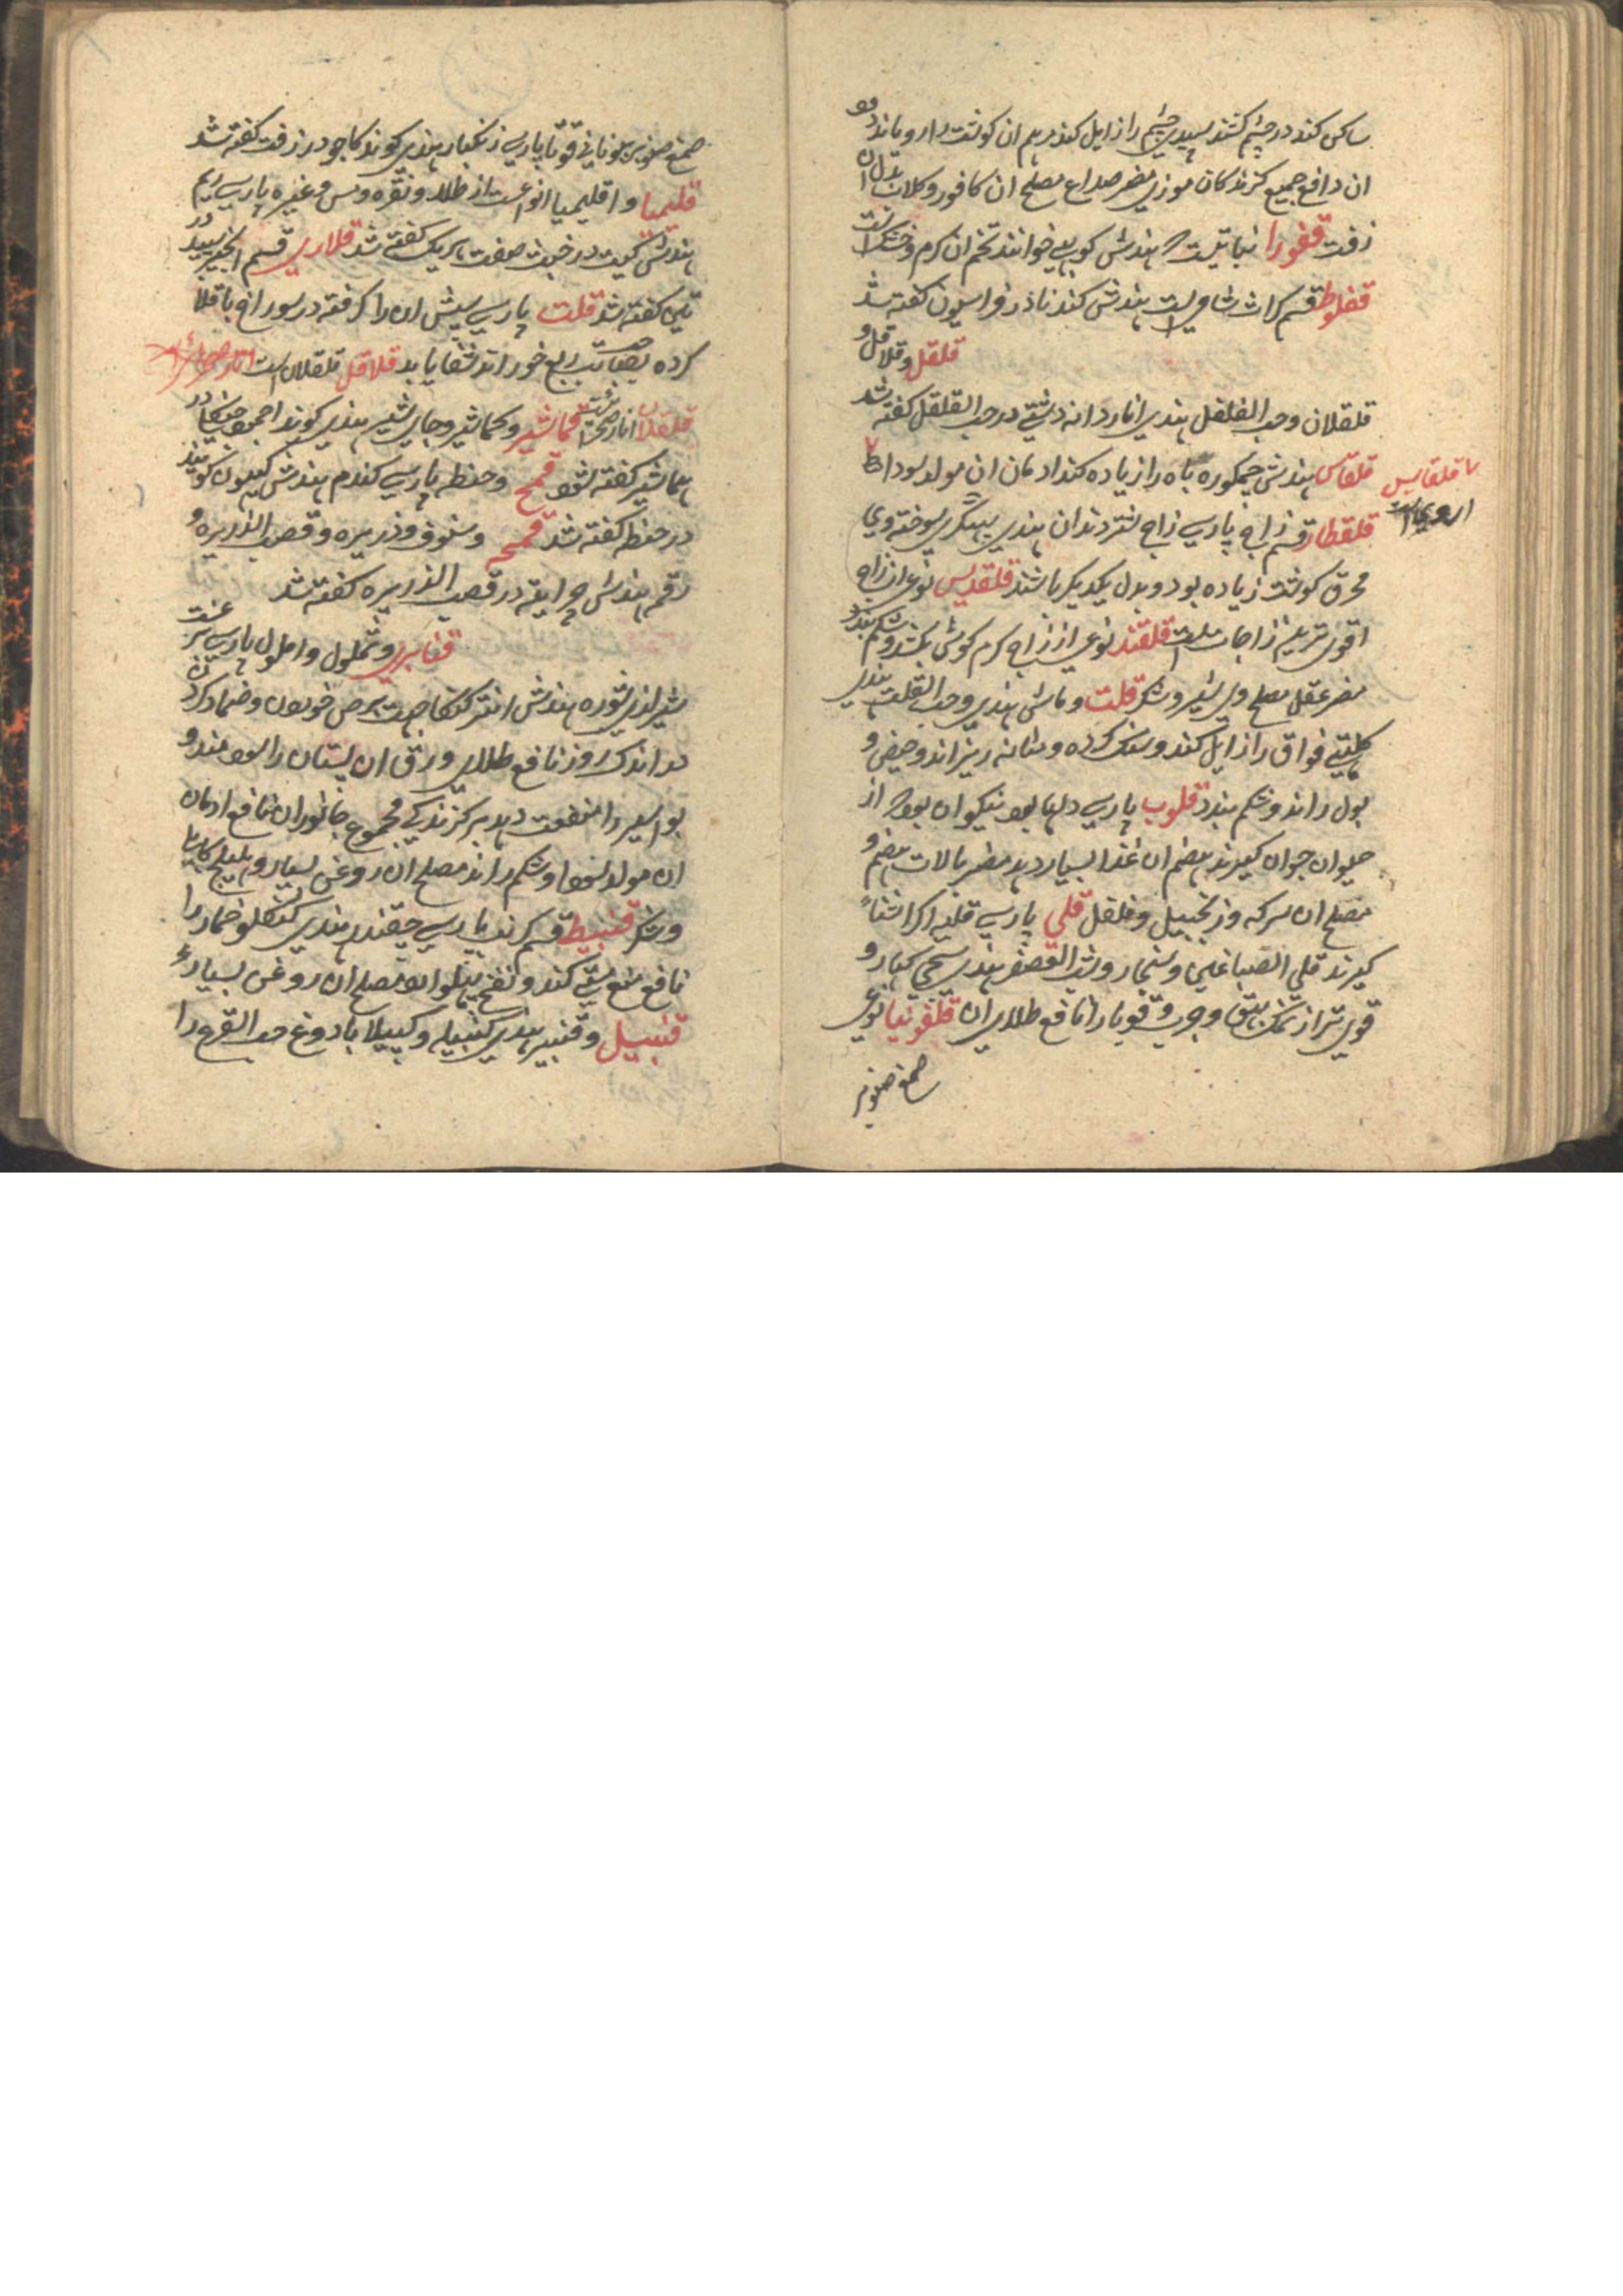 ساکن کند در چشم کشند سپیدی چشم را زایل کند مرهم ان کوشت را رویاند و
ان دافع جمیع کزندکان موذی مضر صداع مصلح ان کافور و کلاب بدل ان
زفت قفورا نباتیست که هندش کوبهی خوانند تخم ان کرم و خشک است
قفلوط قسم کراث شامیست هندش کندنا در فراسیون کفته شد
قلقل و قلاقل و
قلقلان و حب الفلفل هندی انار دانه دشتی در حب القلقل کفته شد
قلقاس هندش چمکوره باه را زیاده کند ادمان ان مولد سودا
یا قلقایس
اروی است
قلقطار قسم زاج پارسی زاج شتر دندان هندی سوخته وی
محرق کوشت زیاده بود و بدل یکدیکر باشند قلقدیس نوع از زاج
اقوی ترین زاجات است قلقند نوعی از زاج کرم کوش بکشد و شکم بندد
مضر عقل مصلح وی شیر و شکر قلت و ماش هندی و حب القلت هندی
کلتهی فواق را زایل کند و سنک کرده و مثانه ریزاند و حیض و
بول راند و شکم بندد قلوب پارسی دلها بود نیکو ان بود که از
حیوان جوان کیرند هضم ان غذا بسیار دهد مضر بالات هضم و
مصلح ان سرکه و زنجبیل و فلفل قلی پارسی قلیه اکر اشنا
کیرند قلی الصباغین و شخار و شب العصفر هندی سجی کهار و
قوی تر از نمک بهق و جرب و قوبا را نافع طلای ان قلفونیا نوعی
صمغ صنوبر
صمغ صنوبر یونانی قوقا پارسی زنکبار هندی کویند کاجو در زفت کفته شد
قلیمیا و اقلیمیا انواعست از طلا و نقره و مس و غیره پارسی ریم
هندش کیت در خبث صفت هر یک کفته شد قلاری قسم انجیر سپید در
تین کفته شد قلت پارسی سپش ان را کرفته در سوراخ باقلا
کرده بصاحب ربع خوراند شفا یابد قلاقل قلقلان است انار صحرائ
قلقلان انار صحرائست قماشیر و کماشیر و جاوشیر هندی کویند
کماشیر کفته شود قمح و حنطه پارسی کندم هندش کیهون کویند
در حنطه کفته شد قمحه و سفوف و ذریره و قصب الذریره و
رقم هندش چرایته در قصب الذریره کفته شد
قنابری و تملول و املول پارسی برغست
شیرازی شوره هندش جهت برص خوردن و ضماد کردن
در اندک روز نافع طلای ورق ان پستان را سود مند و
بواسیر را منفعت دهد بر کزندکی مجموع جانوران نافع ادمان
ان مولد سودا و شکم راند مصلح ان روغن بسیار و هلیله کابلی
و شکر قنبیط قسم کرنب پارسی چقندر هندی خمار را
نافع منع مستی کند و نفخ پهلو ارد مصلح ان روغن بسیار
قنبیل و قنبیر هندی کنبیلی و کپیلا با دوغ حب القرع را